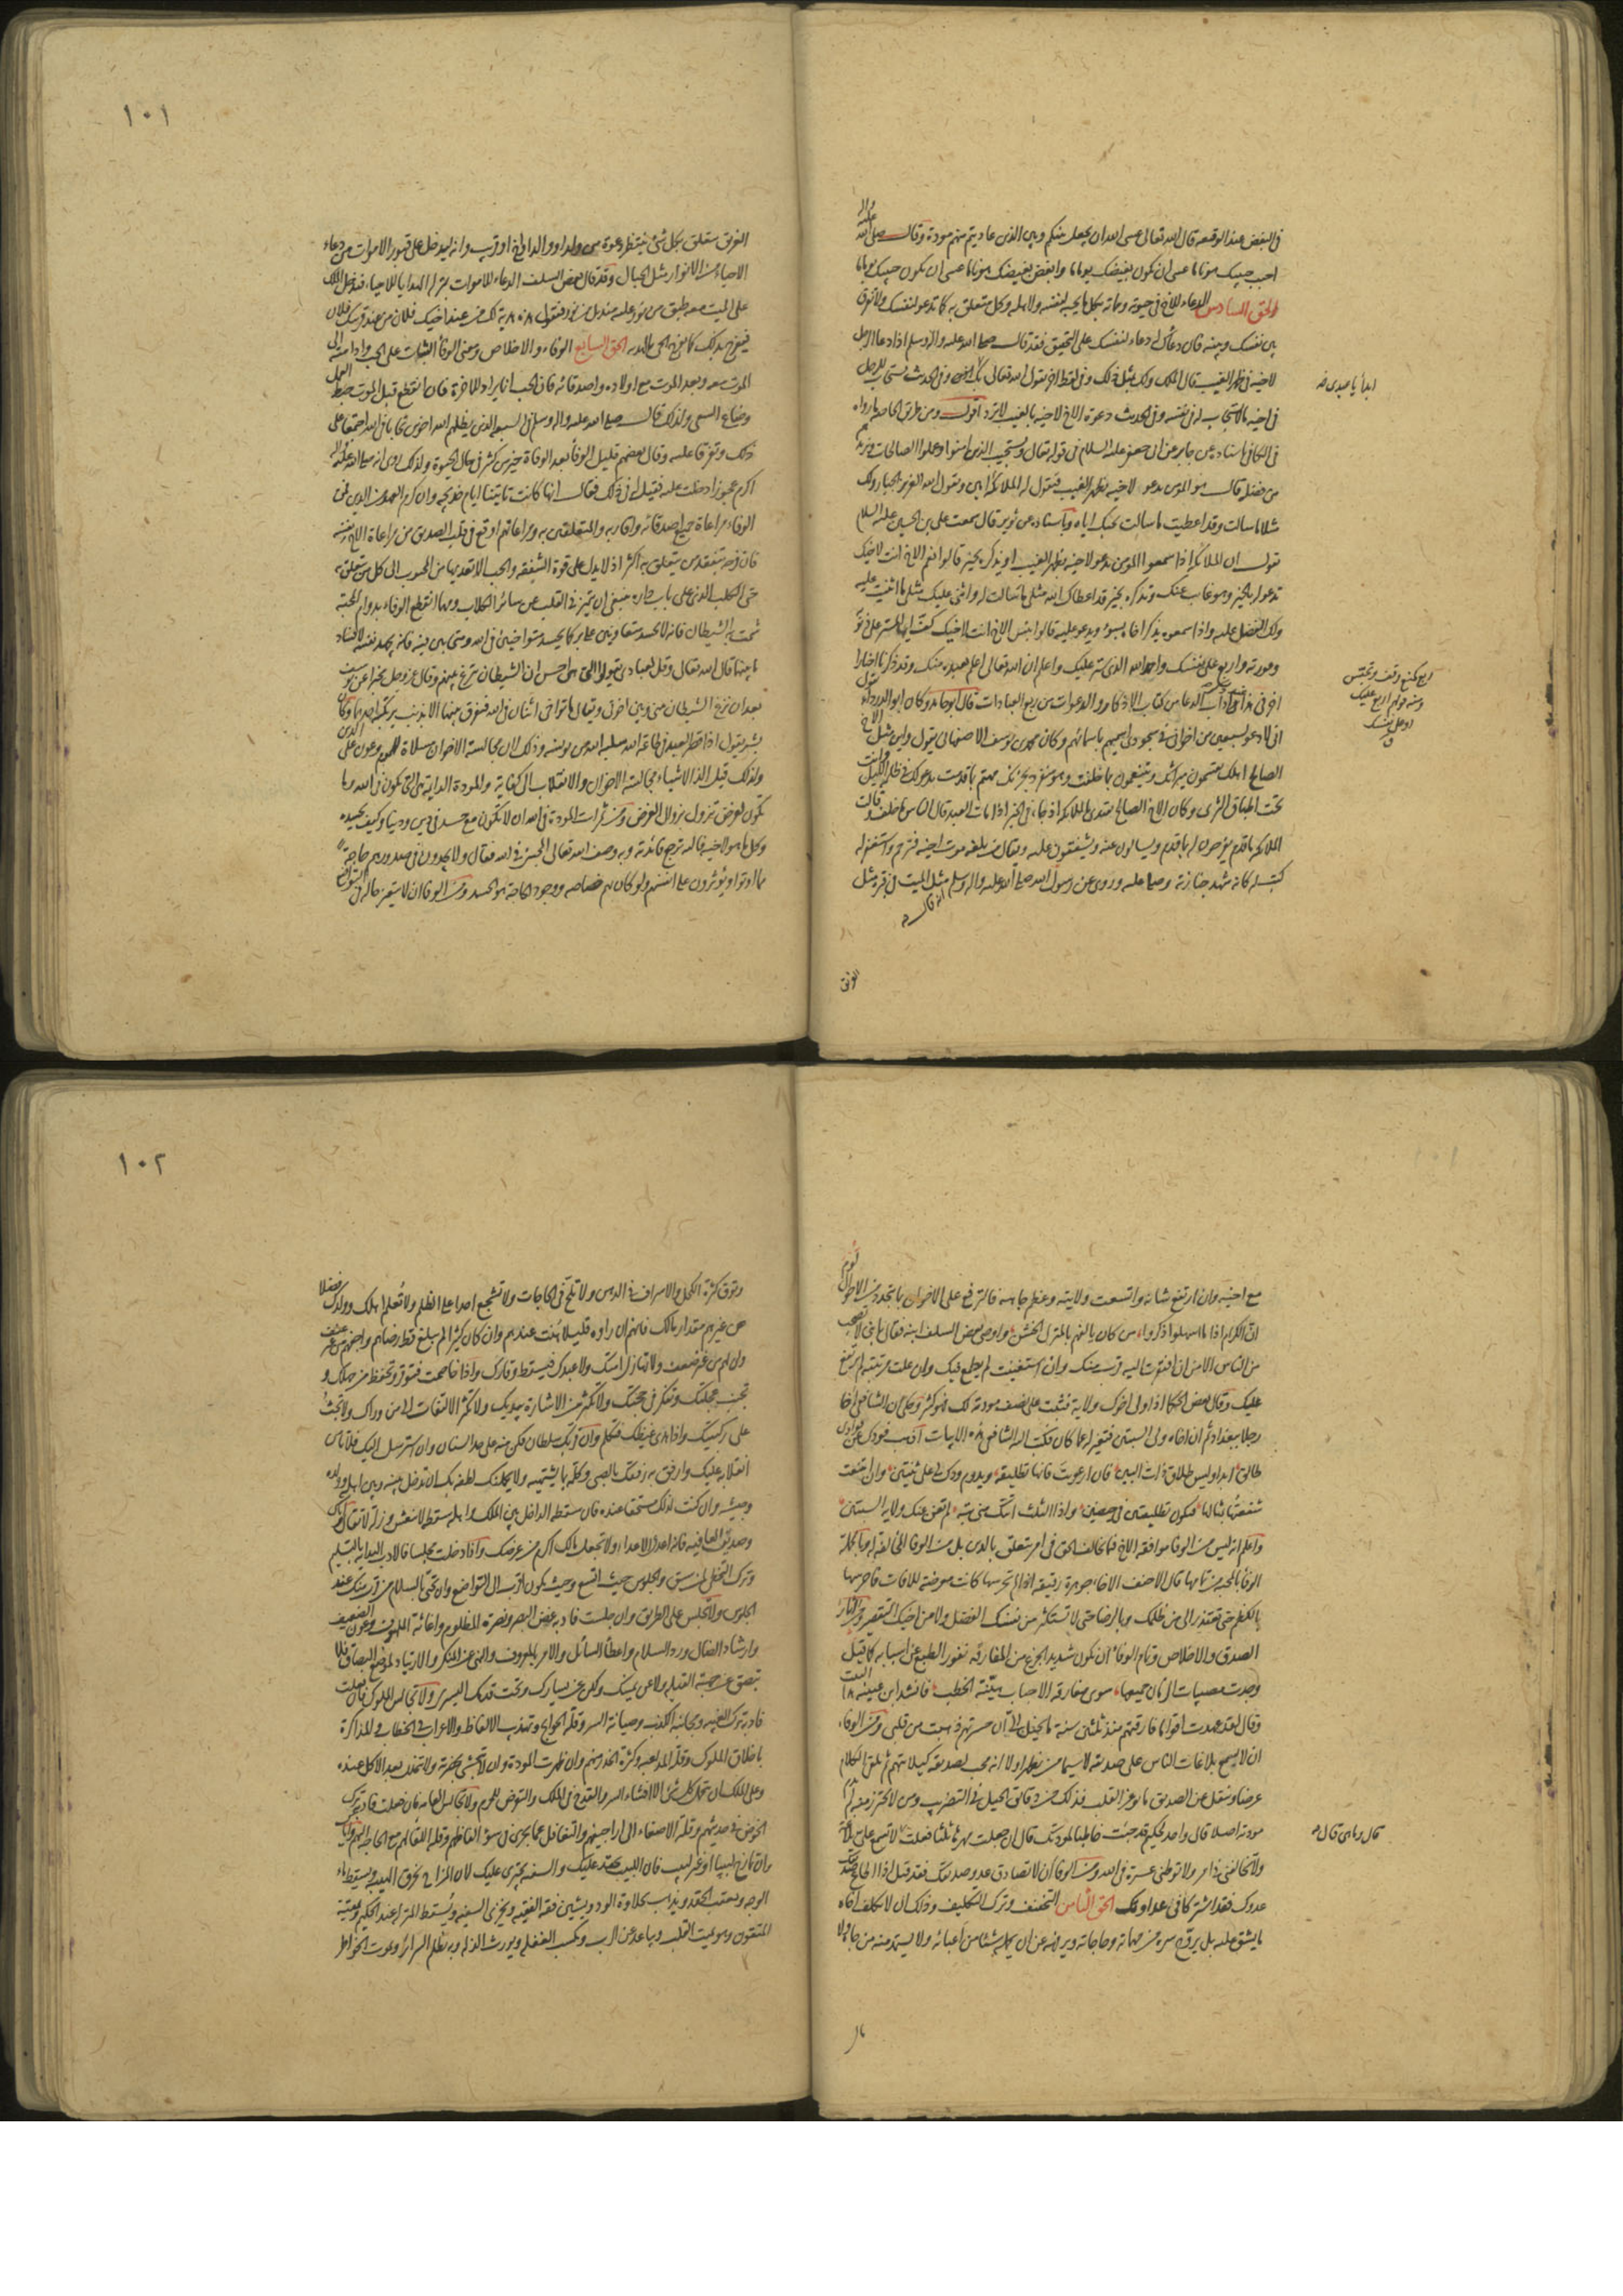 في البغض عند الوقيعة قال الله تعالى عسى الله ان يجعل بينكم وبين الذين عاديتم منهم مودة وقال صلى الله
عليه واله
احبب حبيبك هونا ما عسى ان يكون بغيضك يوما ما وابغض بغيضك هونا ما عسى ان يكون حبيبك يوما ما
الحق السادس الدعاء للاخ في حيوته ومماته بكل ما يحبه لنفسه ولاهله وكل متعلق به كما تدعو لنفسك ولا تفرق
بين نفسك وبينه فان دعاءك له دعاء لنفسك على التحقيق فقد قال صلى الله عليه واله وسلم اذا دعا الرجل
لاخيه في ظهر الغيب قال الملك ولك مثل ذلك وفي لفظ اخر يقول الله تعالى بك ابدأ وفي الحديث يستجاب للرجل
ابدأ يا عبدي
في اخيه ما لا يستجاب له في نفسه وفي الحديث دعوة الاخ لاخيه بالغيب لا ترد اقول ومن طريق الخاصة ما رواه
في الكافي باسناده عن جابر عن ابي جعفر عليه السلام في قوله تعالى ويستجيب الذين امنوا وعملوا الصالحات ويزيدهم
من فضله قال هو المؤمن يدعو لاخيه بظهر الغيب فيقول له الملائكة امين ويقول الله العزيز الجبار ولك
مثلا ما سالت وقد اعطيت ما سالت بحبك اياه وباسناده عن ثوير قال سمعت علي بن الحسين عليه السلام
يقول ان الملائكة اذا سمعوا المؤمن يدعو لاخيه بظهر الغيب او يذكره بخير قالوا نعم الاخ انت لاخيك
تدعو له بالخير وهو غائب عنك وتذكره بخير قد اعطاك الله مثلي ما سالت له واثنى عليك مثلي ما اثنيت عليه
ولك الفضل عليه واذا سمعوه يذكر اخاه بسوء ويدعو عليه قالوا بئس الاخ انت لاخيك كف ايها المستر على ذنوبه
وعورته واربع على نفسك واحمد الله الذي ستر عليك واعلم ان الله تعالى اعلم بعبده منك وقد ذكرنا اخبارا
اخر في هذا في اداب الدعا من كتاب الاذكار والدعوات من ربع العبادات قال ابو حامد وكان ابو الدرداء يقول
اني لادعو لسبعين من اخواني في سجودي اسميهم باسمائهم وكان محمد بن يوسف الاصفهاني يقول واين مثل الاخ
الصالح اهلك يقتسمون ميراثك ويتنعمون بما خلفت وهو منفرد بحزنك مهتم بما قدمت يدعو لك في ظلمة الليل وانت
تحت اطباق الثرى وكان الاخ الصالح يقتدي بالملائكة اذ جاء في الخبر اذا مات العبد قال الناس ما خلف وقالت
الملائكة ما قدم يفرحون له بما قدم ويسالون عنه ويشفقون عليه ويقال من بلغه موت اخيه فترحم واستغفر له
كتب له كانه شهد جنازته وصلى عليه وروي عن رسول الله صلى الله عليه واله وسلم انه قال مثل الميت في قبره مثل
الغريق
١٠١
الغريق يتعلق بكل شئ ينتظر دعوة من ولد او والد او اخ او قريب وانه ليدخل على قبور الاموات من دعاء
الاحياء من الانوار مثل الجبال وقد قال بعض السلف الدعاء للاموات بمنزلة الهدايا للاحياء فيدخل الملك
على الميت معه طبق من نور عليه منديل من نور فيقول هذه هدية لك من عند اخيك فلان من عند قريبك فلان
فيفرح بذلك كما يفرح الحي بالهدية الحق السابع الوفاء والاخلاص ومعنى الوفاء الثبات على الحب وادامته الى
الموت معه وبعد الموت مع اولاده واصدقائه فان الحب انما يراد للاخرة فان انقطع قبل الموت حبط العمل
وضاع السعي ولذلك قال صلى الله عليه واله وسلم في السبعة الذين يظلهم الله اخوين تحابا في الله اجتمعا على
ذلك وتفرقا عليه وقال بعضهم قليل الوفاء بعد الوفاة خير من كثير في حال الحيوة ولذلك روى انه صلى الله عليه واله
اكرم عجوزا دخلت عليه فقيل له في ذلك فقال انها كانت تاتينا ايام خديجة وان كرم العهد من الدين فمن
الوفاء مراعاة جميع اصدقائه واقاربه والمتعلقين به ومراعاتهم اوقع في قلب الصديق من مراعاة الاخ نفسه
فان فرحه بتفقد من يتعلق به اكثر اذ لا يدل على قوة الشفقة والحب الا تعديها من المحبوب الى كل من يتعلق به
حتى الكلب الذي على باب داره ينبغي ان يميز في القلب عن سائر الكلاب ومهما انقطع الوفاء بدوام المحبة
شمت به الشيطان فانه لا يحسد متعاونين على بر كما يحسد متواخيين في الله ومتحابين فيه فانه يجهد نفسه لافساد
ما بينهما قال الله تعالى وقل لعبادي يقولوا التي هي احسن ان الشيطان ينزغ بينهم وقال عز وجل مخبرا عن يوسف
بعد ان نزغ الشيطان بيني وبين اخوتي ويقال ما تواخى اثنان في الله فتفرق بينهما الا بذنب يرتكبه احدهما وكان
بشر يقول اذا قصر العبد في طاعة الله سلبه الله من يونسه وذلك لان مجالسة الاخوان مسلاة للهموم وعون على الدين
ولذلك قيل الذ الاشياء مجالسة الاخوان والانقلاب الى كفاية والمودة الدايمة هي التي تكون في الله وما
يكون لغرض يزول بزوال الغرض ومن ثمرات المودة في الله ان لا تكون مع حسد في دين ودنيا وكيف يحسده
وكل ما هو لاخيه فاليه ترجع فائدته وبه وصف الله تعالى المحبين في الله فقال ولا يجدون في صدورهم حاجة
مما اوتوا ويؤثرون على انفسهم ولو كان بهم خصاصة ووجود الحاجة هو الحسد ومن الوفا ان لا يتغير حاله في التواضع
مع اخيه وان ارتفع شانه واتسعت ولايته وعظم جاهه فالترفع على الاخوان بما يتجدد من الاحوال لؤم
ان الكرام اذا ما اسهلوا ذكروا من كان يالفهم بالمنزل الخشن واوصى بعض السلف ابنه فقال يا بني لا تصحب
من الناس الا من ان افتقرت اليه قرب منك وان استغنيت لم يطمع فيك وان علت مرتبته لم يرتفع
عليك وقال بعض الحكما اذا ولى اخوك ولاية فثبت على نصف مودته لك فهو كثير وحكي ان الشافعي اخا
رجلا ببغداد ثم ان اخاه ولى السيبين فتغير له عما كان فكتب اليه الشافعي هذه الابيات اذهب فودك من فوادي
طالق ابدا وليس طلاق ذات البين فان ارعويت فانها تطليقة ويدوم ودك لي على ثنتين وان امتنعت
شفعتها بمثالها فتكون تطليقتين في حيضين واذا الثلث اتتك مني بتة لم تغن عنك ولاية السيبين
واعلم انه ليس من الوفا موافقة الاخ فيما يخالف الحق في امر يتعلق بالدين بل من الوفا المخالفة له وبالجملة
قال الاحنف الاخا جوهرة رقيقة ان لم تحرسها كانت معرضة للافات فاحرسها
بالكظم حتى تعتذر الى من ظلمك وبالرضا حتى لا تستكثر من نفسك الفضل ولا من اخيك التقصير ومن اثار
الصدق والاخلاص وتمام الوفاء ان تكون شديد الجزع من المفارقة نفور الطبع عن اسبابه كما قيل
وجدت مصيبات الزمان جميعها سوى مفارقة الاحباب هينة الخطب وانشد ابن عيينة هذا البيت
وقال لقد عهدت اقواما فارقتهم منذ ثلثين سنة ما يخيل لي ان حسرتهم ذهبت من قلبي ومن الوفاء
ان لا يسمع بلاغات الناس على صديقه لاسيما من يظهر اولا انه محب لصديقه كيلا يتهم ثم يلقي الكلام
عرضا وينقل عن الصديق ما يوغر القلب فذلك من دقائق الحيل في التضريب ومن لا يحترز منه لم تدم
مودته اصلا قال واحد لحكيم قد جئت خاطبا لمودتك قال ان جعلت مهرها ثلثا فعلت لا تسمع علي بلاغة
قال وما هي قال
ولا تخالفني في امر ولا توطئني عشوة في الله ومن الوفا ان لا تصادق عدو صديقك فقد قيل اذا اطاع صديقك
عدوك فقد اشتركا في عداوتك الحق الثامن التخفيف وترك التكليف وذلك ان لا يكلف اخاه
ما يشق عليه بل يروح سره من مهماته وحاجاته ويرفهه عن ان يحمله شيئا من اعبائه ولا يستمد منه من جاه ولا
مال
١٠٢
وتوق كثرة الكحل والاسراف في الدهن ولا تلح في الحاجات ولا تشجع احدا على الظلم ولا تعلم اهلك وولدك فضلا
عن غيرهم مقدار مالك فانهم ان راوه قليلا هنت عندهم وان كان كثيرا لم تبلغ قط رضاهم واخفهم من غير عنف
ولن لهم من غير ضعف ولا تهازل امتك ولا عبدك فيسقط وقارك واذا خاصمت فتوقر وتحفظ من جهلك و
تجنب عجلتك وتفكر في حجتك ولا تكثر من الاشارة بيديك ولا تكثر الالتفات الى من وراك ولا تجث
على ركبتيك واذا هدى غيظك فتكلم وان قربك سلطان فكن منه على حد السنان وان استرسل اليك فلا تامن
انقلابه عليك وارفق به رفقك بالصبي وكلمه بما يشتهيه ولا يحملنك لطفه بك ان تدخل بينه وبين اهله وولده
وحشمه وان كنت لذلك مستحقا عنده فان سقطة الداخل بين الملك واهله سقطة لا تنعش وزلة لا تقال واياك
وصديق العافية فانه اعدى الاعداء ولا تجعل مالك اكرم من عرضك واذا دخلت مجلسا فالادب البداية بالتسليم
وترك التخطي لمن سبق والجلوس حيث اتسع وحيث يكون اقرب الى التواضع وان تحيي بالسلام من قرب منك عند
الجلوس ولا تجلس على الطريق وان جلست فادبه غض البصر ونصرة المظلوم واغاثة الملهوف وعون الضعيف
وارشاد الضال ورد السلام واعطاء السائل والامر بالمعروف والنهي عن المنكر والارتياد لموضع البصاق فلا
تبصق عن جهة القبلة ولا عن يمينك ولكن عن يسارك وتحت قدمك اليسرى ولا تجالس الملوك فان فعلت
فادبه ترك الغيبة ومجانبة الكذب وصيانة السر وقلة الحوائج وتهذيب الالفاظ والاعراب في الخطاب والمذاكرة
باخلاق الملوك وقلة المداعبة وكثرة الحذر منهم وان ظهرت المودة وان لا تتجشى بحضرته ولا تتخلل بعد الاكل عنده
وعلى الملك ان يحتمل كل شئ الا افشاء السر والقدح في الملك والتعرض للحرم ولا تجالس العامة فان فعلت فادبه ترك
الخوض في حديثهم وقلة الاصغاء الى اراجيفهم والتغافل عما يجري من سوء الفاظهم وقلة اللقاء لهم مع الحاجة اليهم واياك
وان تمازح لبيبا او غير لبيب فان اللبيب يحقد عليك والسفيه يجترئ عليك لان المزاح يخرق الهيبة ويسقط ماء
الوجه ويعقب الحقد ويذهب بحلاوة الود ويشين فقه الفقيه ويجرئ السفيه ويسقط المنزلة عند الحكيم ويمقته
المتقون وهو يميت القلب ويباعد عن الرب ويكسب الغفلة ويورث الذلة وبه تظلم السرائر وتموت الخواطر